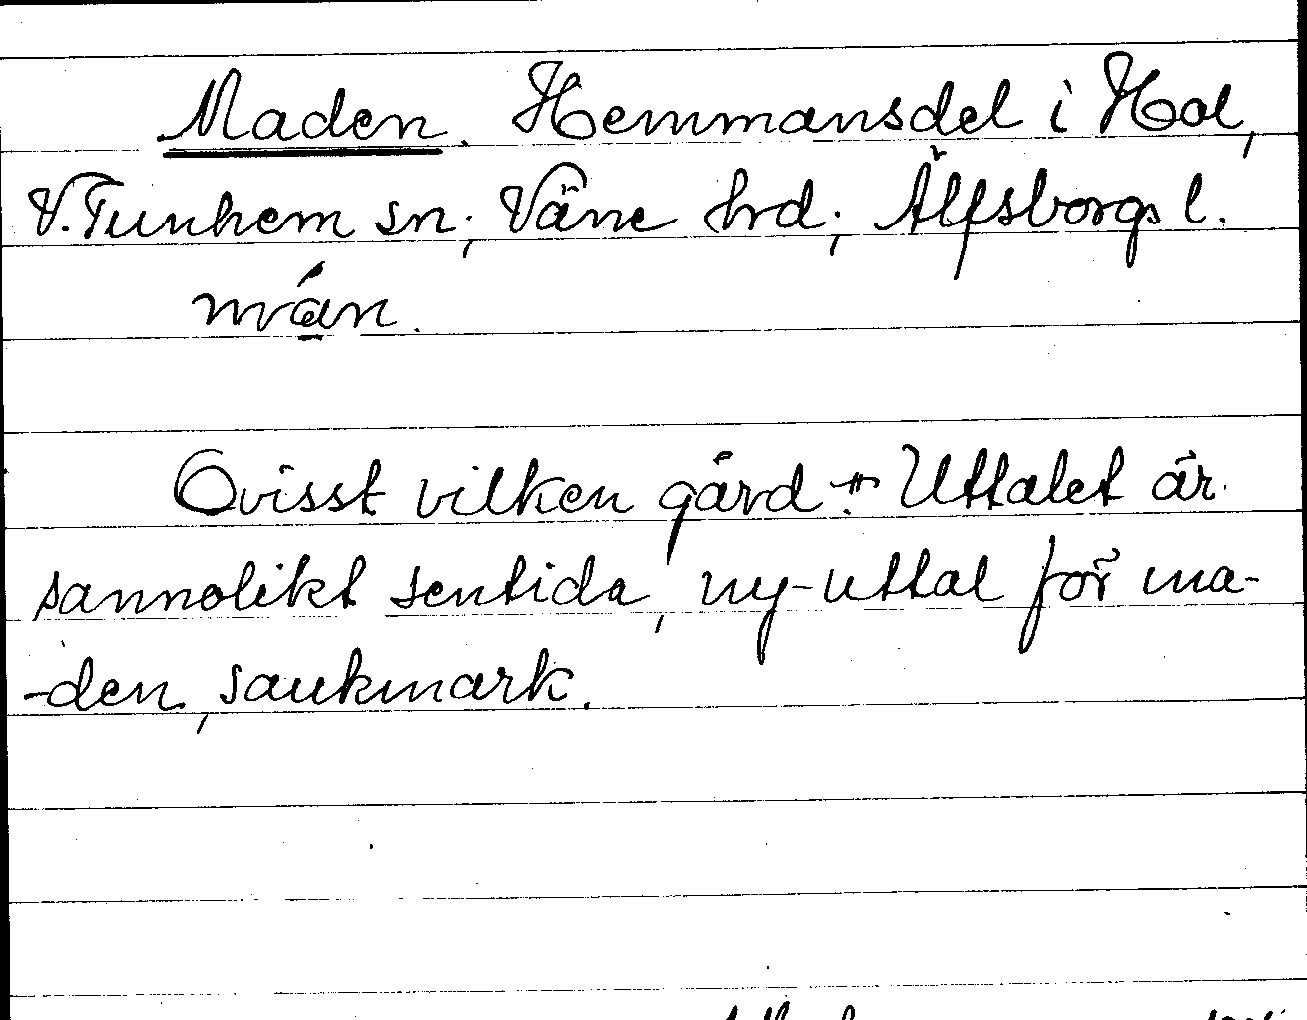 Maden. Hemmansdel i Hol,
V. Tunhem sn; Väne hrd; Älfsborgs l.
Ovisst vilken gård. Uttalet är
sannolikt sentida, ny-uttal för ma-
-den, sankmark.